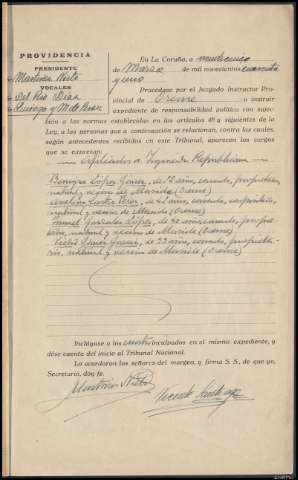 PROVIDENCIA
PRESIDENTE
Martinez Nieto
VOCALES
Del Rio Diaz
Quiroga y
En La Coruña, a
de Marzo de mil novecientos cuarenta
y uno
Procédase por el Juzgado Instructor Pro-
vincial de Orense a instruir
expediente de responsabilidad política con suje-
ción a las normas establecidas en los artículos 49 y siguientes de la
Ley, a las personas que a continuación se relacionan, contra las cuales,
según antecedentes recibidos en este Tribunal, aparecen los cargos
que se expresan:
Afiliados a Izquierda Republicana
Lopez, de 72 años, casado, propietario,
natural y vecino de Maside (Orense)
Castro Perez, de 42 años, casado, carpintero,
natural y vecino de Maside (Orense)
Manuel Gonzalez Lopez, de 40 años, casado, propie-
tario, natural y vecino de Maside (Orense)
de 33 años, casado, propieta-
rio, natural y vecino de Maside (Orense)
Inclúyase a los cuatro inculpados en el mismo expediente, y
dése cuenta del inicio al Tribunal Nacional.
Lo acordaron los señores del margen y firma S. S., de que yo,
Secretario, doy fe.
Martinez Nieto
Vicente